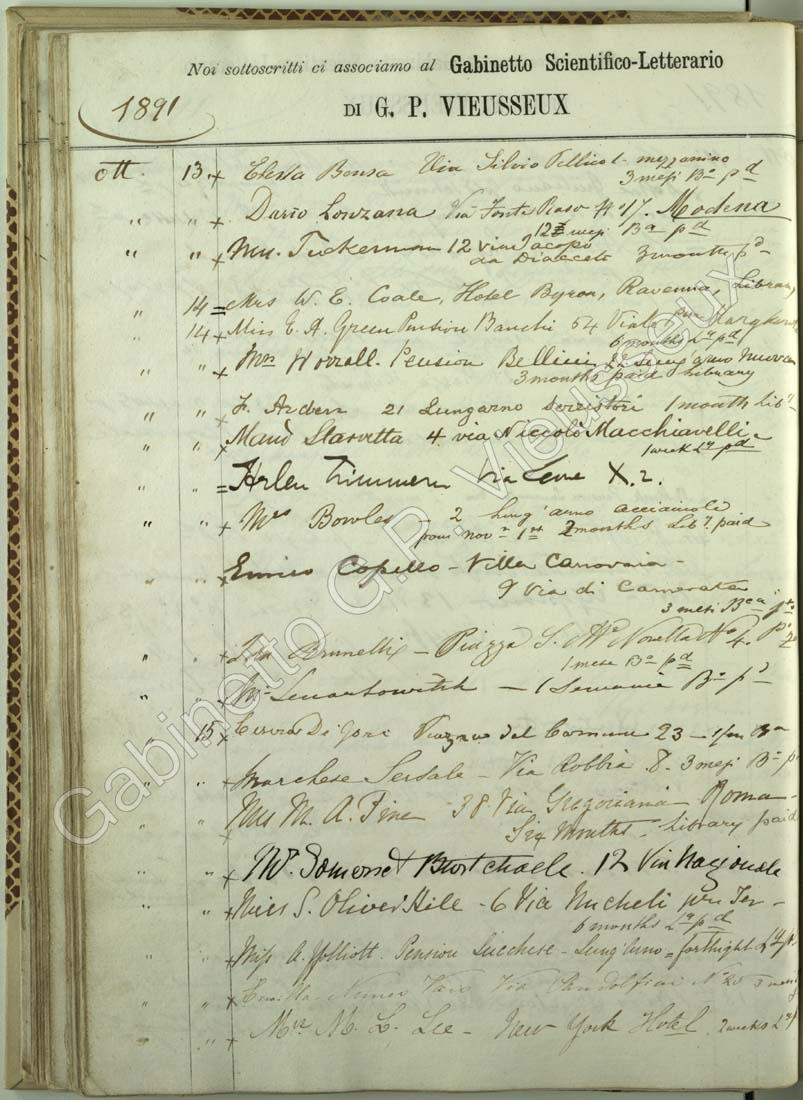 Noi sottoscritti ci associamo al Gabinetto Scientifico-Letterario
1891
DI G. P. VIEUSSEUX
ott. 13 + Bonsa Via Silvio Pellico 1 mezzanino
3 mesi Bna pd
" " + Dario Via Fonte Raso No 17. Modena
12 mesi Ba pd
" " + Mrs. Tuckerman 12 via Jacopo
da Diacceto 3 months pd
" 14 = Mrs W. E. Coale, Hotel Byron, Ravenna, Library
14 + Miss E. A. Green Pension Banchi 64 Viale
6 months Ly pd
" " + Mrs Worrall. Pension Bellini 22 Lung'arno
3 months paid Library
" " + F. Ardern 21 Lungarno Serristori 1 month Liby
" " + Maud 4 via Niccolò Macchiavelli
1 week Ly pd
" " = Helen Zimmern Via Leone X. 2.
" " + Mrs Bowles - 2 Lung'arno acciaiuole
from Nov 1st 2 months Liby. paid
" " + Enrico Copello - Villa Canovaia -
9 Via di Camerata
3 mesi
" " + Ida Brunelli - Piazza S. Ma Novella No 4. Po
1 mese Ba pd
" " + Mr Lenartowitch - 1 Bna pd
" 15 + Di Gori Piazza del 23 -
" " + Marchese Sersale - Via Robbia 8. 3 mesi Bna
" " + Mrs M. A. Fine 38 Via Gregoriana Roma -
Months - Library paid
" " + Mr. Somerset 12 Via Nazionale
" " + Miss S. Oliver Hile - 6 Via Micheli
6 months Ly pd
" " + Miss A. Pension Lucchese - Lung'Arno = fortnight Ly
" " + Nunes Vais Via Pandolfini No 20
" " + Mrs M. L. Lee - New York Hotel 2 weeks
Gabinetto G.P. Vieusseux